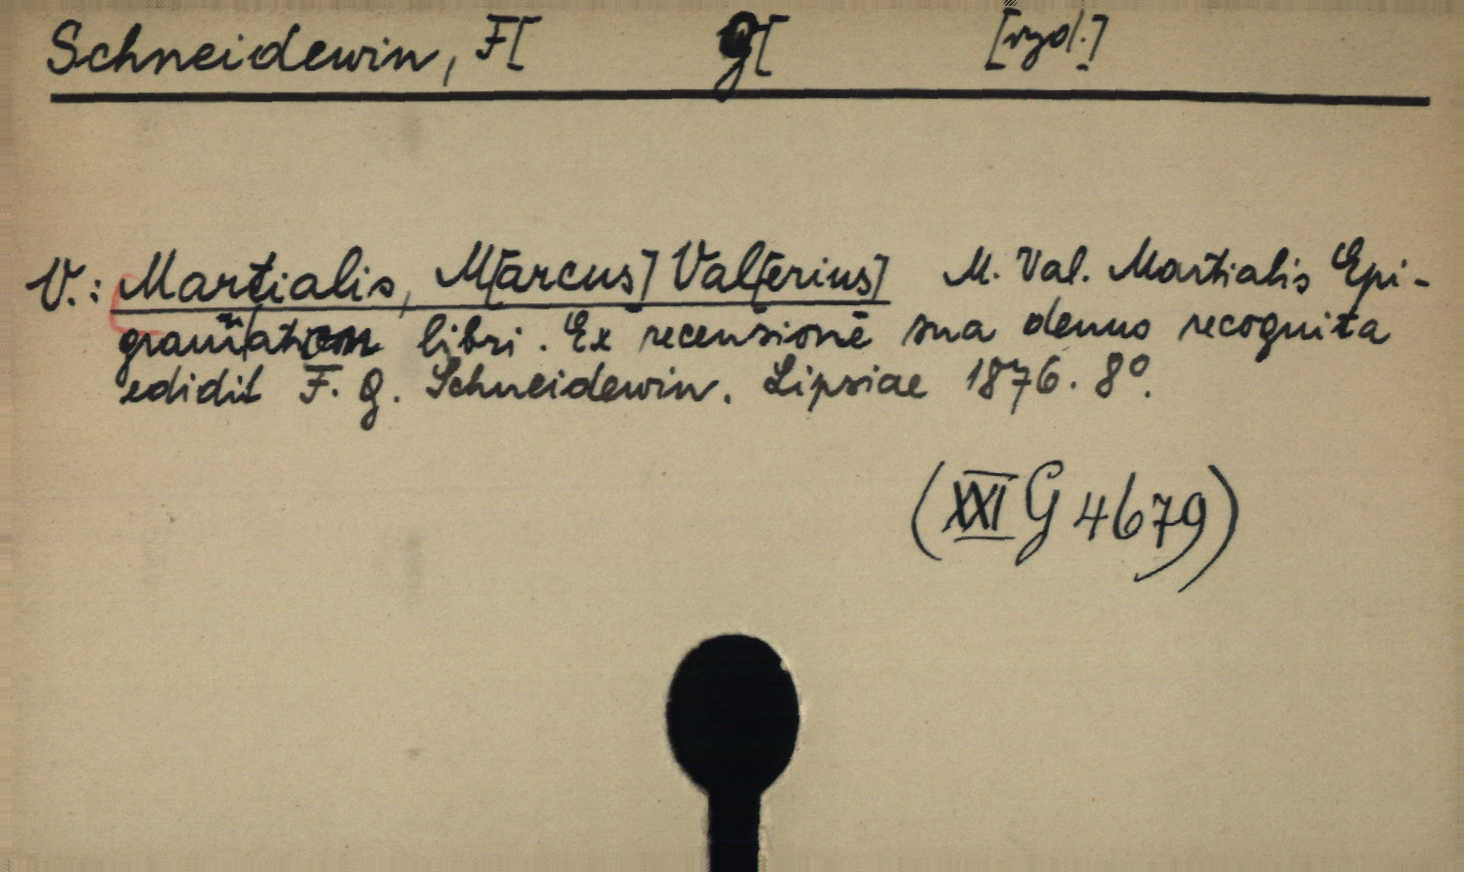 Schneidewin, F[ G[ [vyd.]
V.: Martialis, M[arcus] Val[erius] M. Val. Martialis Epi-
grammaton libri. Ex recensione sua denuo recognita
edidit F. G. Schneidewin. Lipsiae 1876. 8º.
(XXI G 4679)